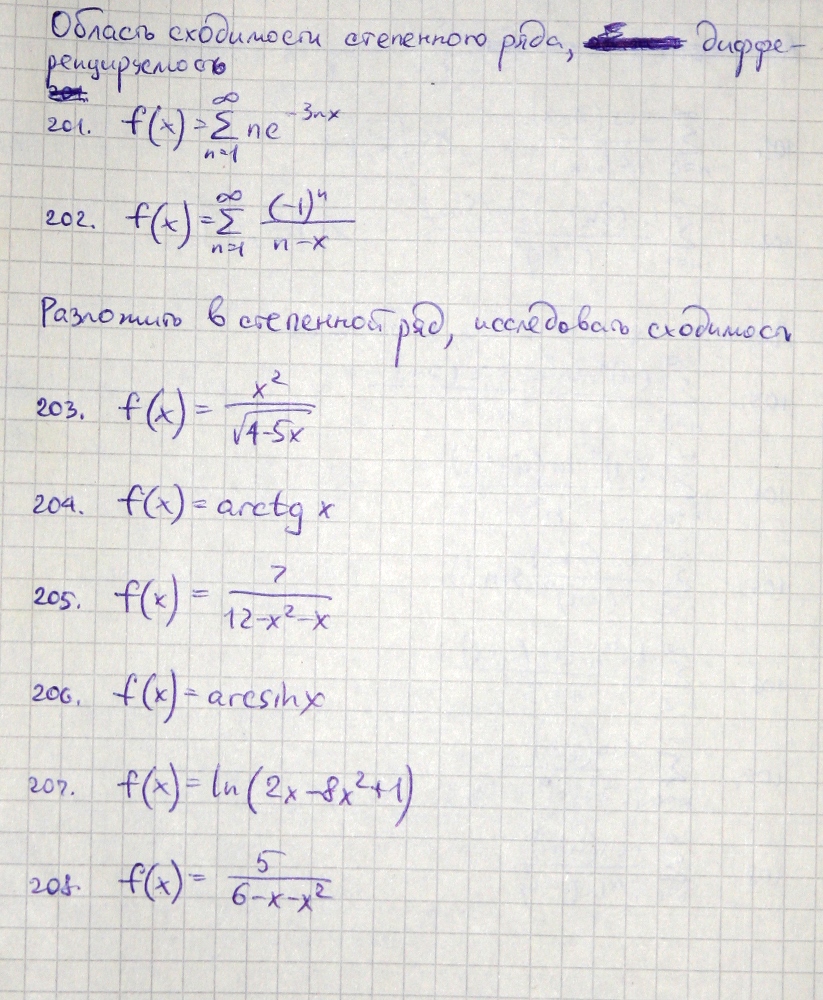 Область сходимости степенного ряда, диффе-
ренцируемость
201. f(x) = ∑_{n=1}^{∞} ne^{-3nx}
202. f(x) = ∑_{n=1}^{∞} (-1)^n / (n-x)
Разложить в степенной ряд, исследовать сходимость
203. f(x) = x² / √(4-5x)
204. f(x) = arctg x
205. f(x) = 7 / (12-x²-x)
206. f(x) = arcsin x
207. f(x) = ln(2x-8x²+1)
208. f(x) = 5 / (6-x-x²)